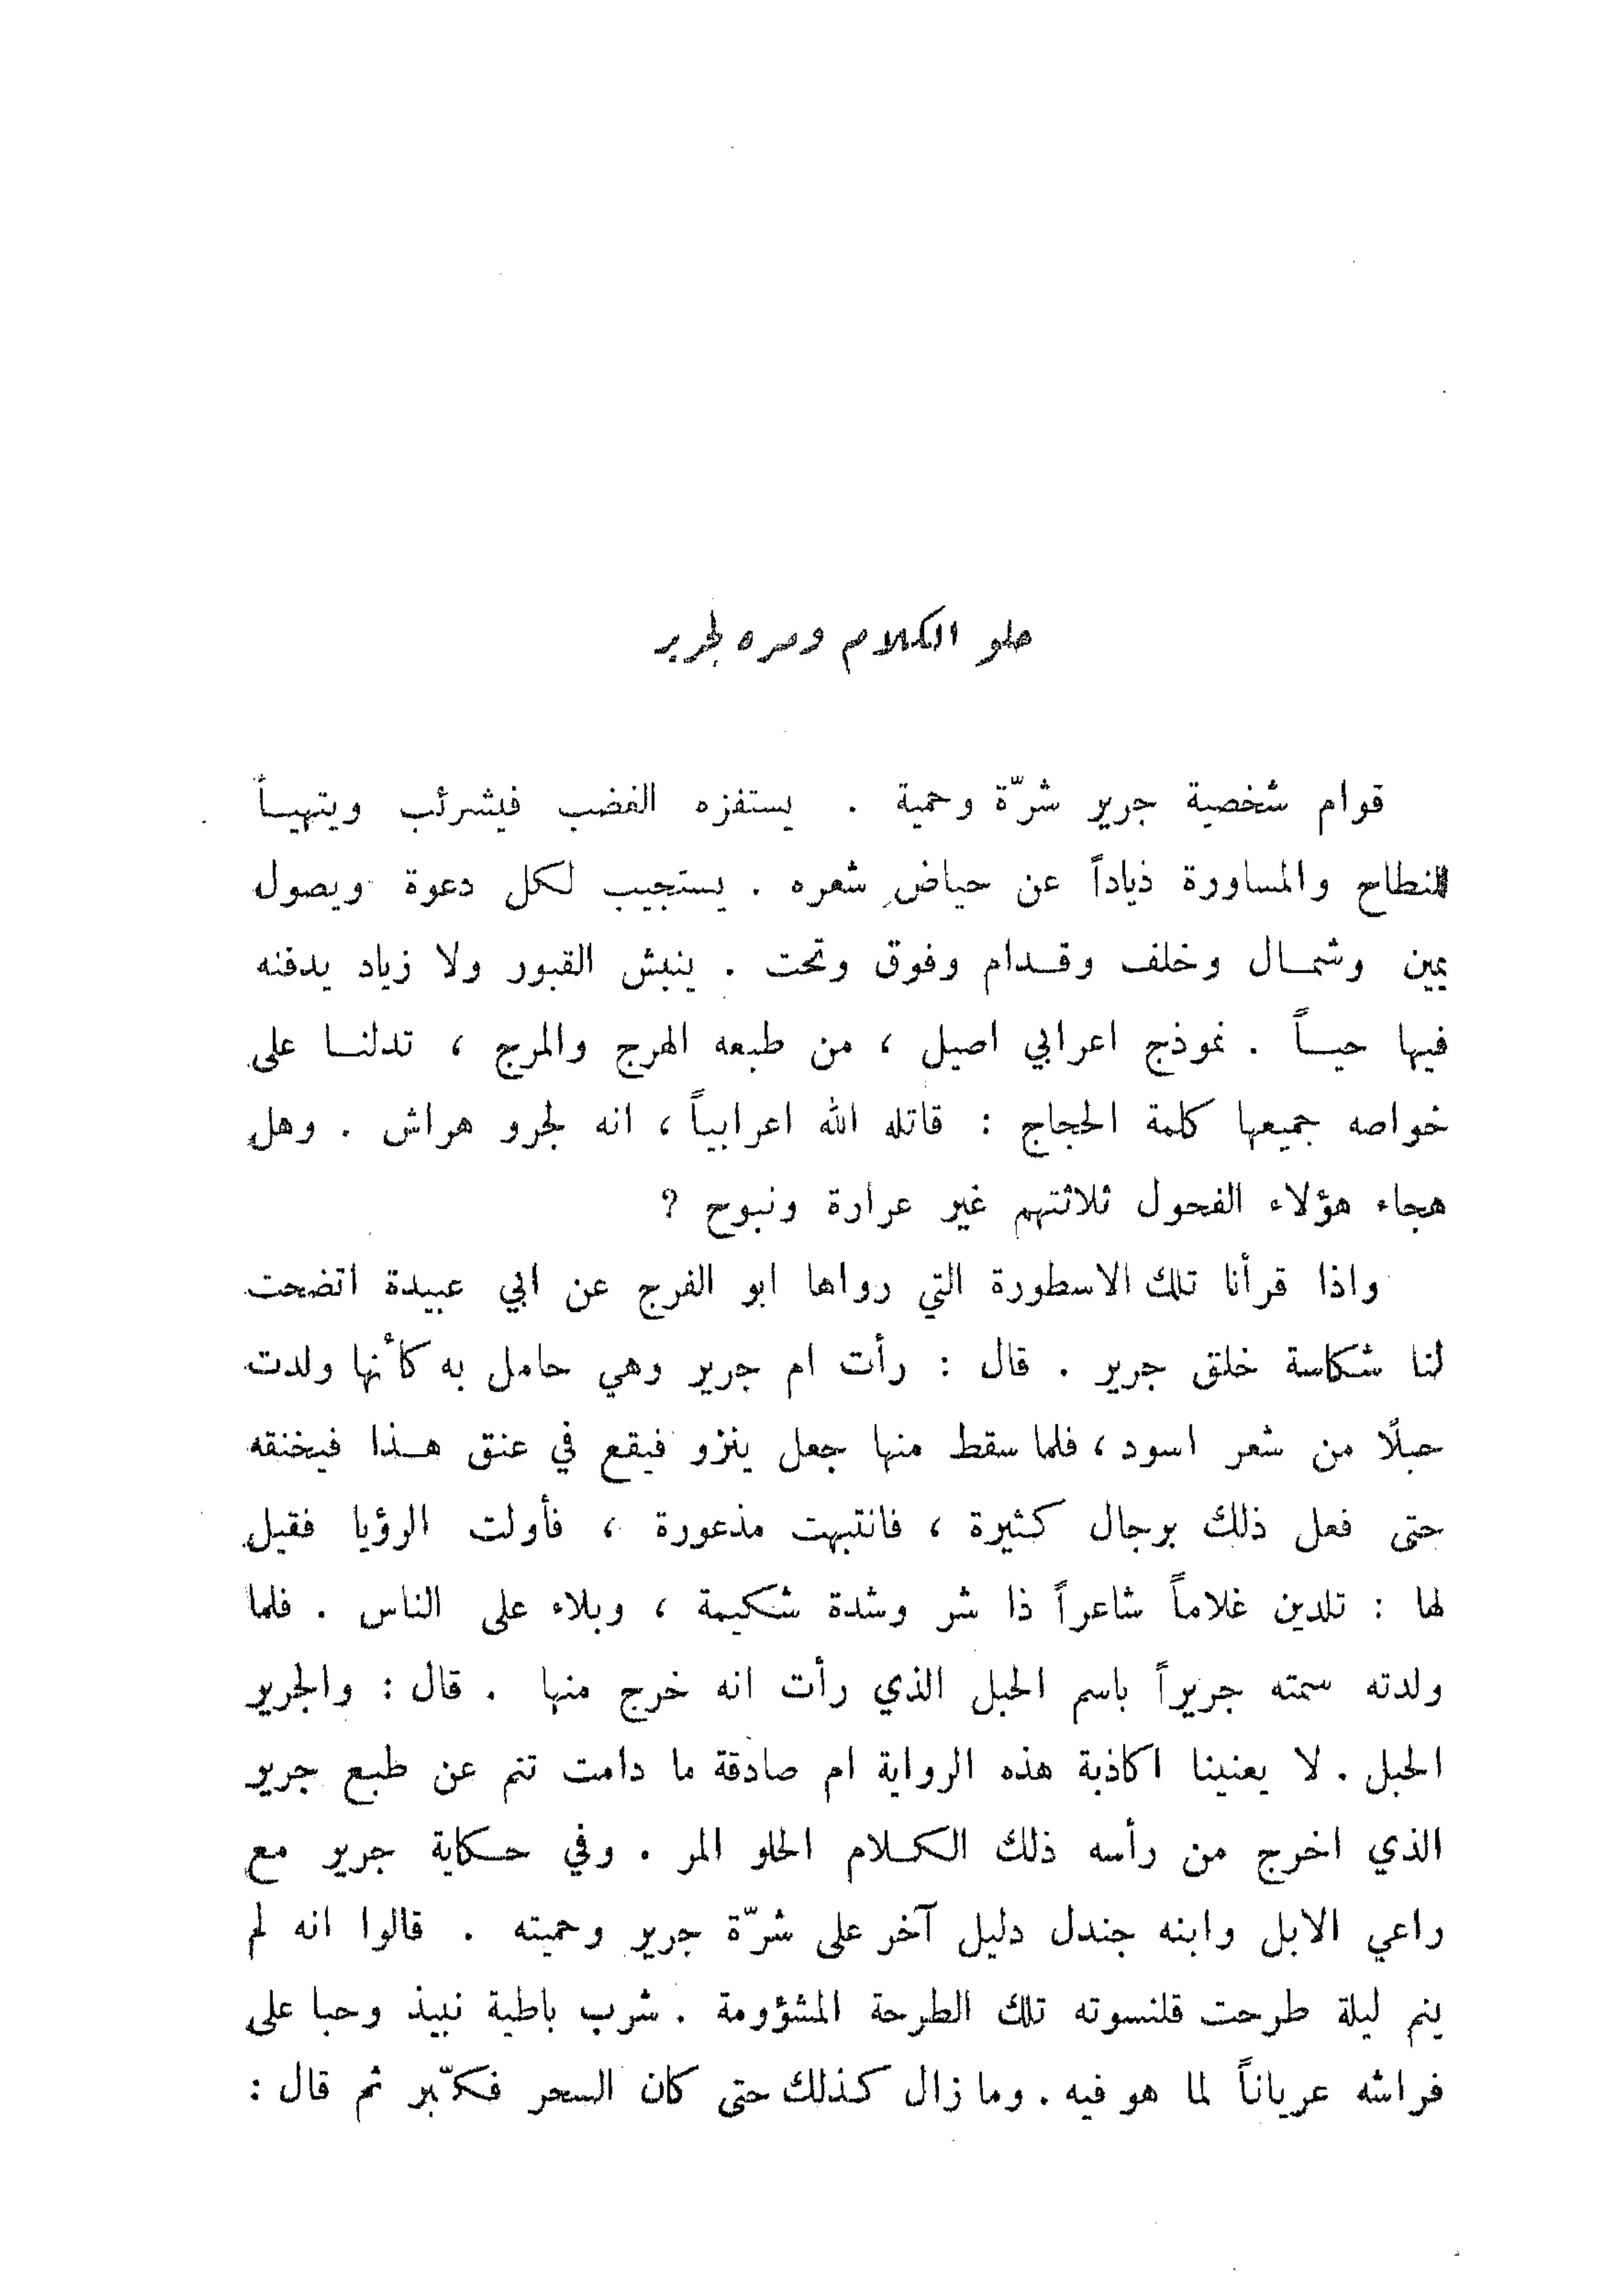 حلو الكلام ومره لجرير
قوام شخصية جرير شرّة وحمية . يستفزه الغضب فيشرئب ويتهيأ
للنطاح والمساورة ذياداً عن حياضِ شعره . يستجيب لكل دعوة ويصول
يمين وشمال وخلف وقدام وفوق وتحت . ينبش القبور ولا زياد يدفنه
فيها حياً . نموذج اعرابي اصيل ، من طبعه الهرج والمرج ، تدلنا على
خواصه جميعها كلمة الحجاج : قاتله الله اعرابياً ، انه لجرو هراش . وهل
هجاء هؤلاء الفحول ثلاثتهم غير عرارة ونبوح ؟
واذا قرأنا تلك الاسطورة التي رواها ابو الفرج عن ابي عبيدة اتضحت
لنا شكاسة خلق جرير . قال : رأت ام جرير وهي حامل به كأنها ولدت
حبلًا من شعر اسود ، فلما سقط منها جعل ينزو فيقع في عنق هذا فيخنقه
حتى فعل ذلك برجال كثيرة ، فانتبهت مذعورة ، فأولت الرؤيا فقيل
لها : تلدين غلاماً شاعراً ذا شر وشدة شكيمة ، وبلاء على الناس . فلما
ولدته سمته جريراً باسم الحبل الذي رأت انه خرج منها . قال : والجرير
الحبل . لا يعنينا اكاذبة هذه الرواية ام صادقة ما دامت تنم عن طبع جرير
الذي اخرج من رأسه ذلك الكلام الحلو المر . وفي حكاية جرير مع
راعي الابل وابنه جندل دليل آخر على شرّة جرير وحميته . قالوا انه لم
ينم ليلة طرحت قلنسوته تلك الطرحة المشؤومة . شرب باطية نبيذ وحبا على
فراشه عرياناً لما هو فيه . وما زال كذلك حتى كان السحر فكبّر ثم قال :